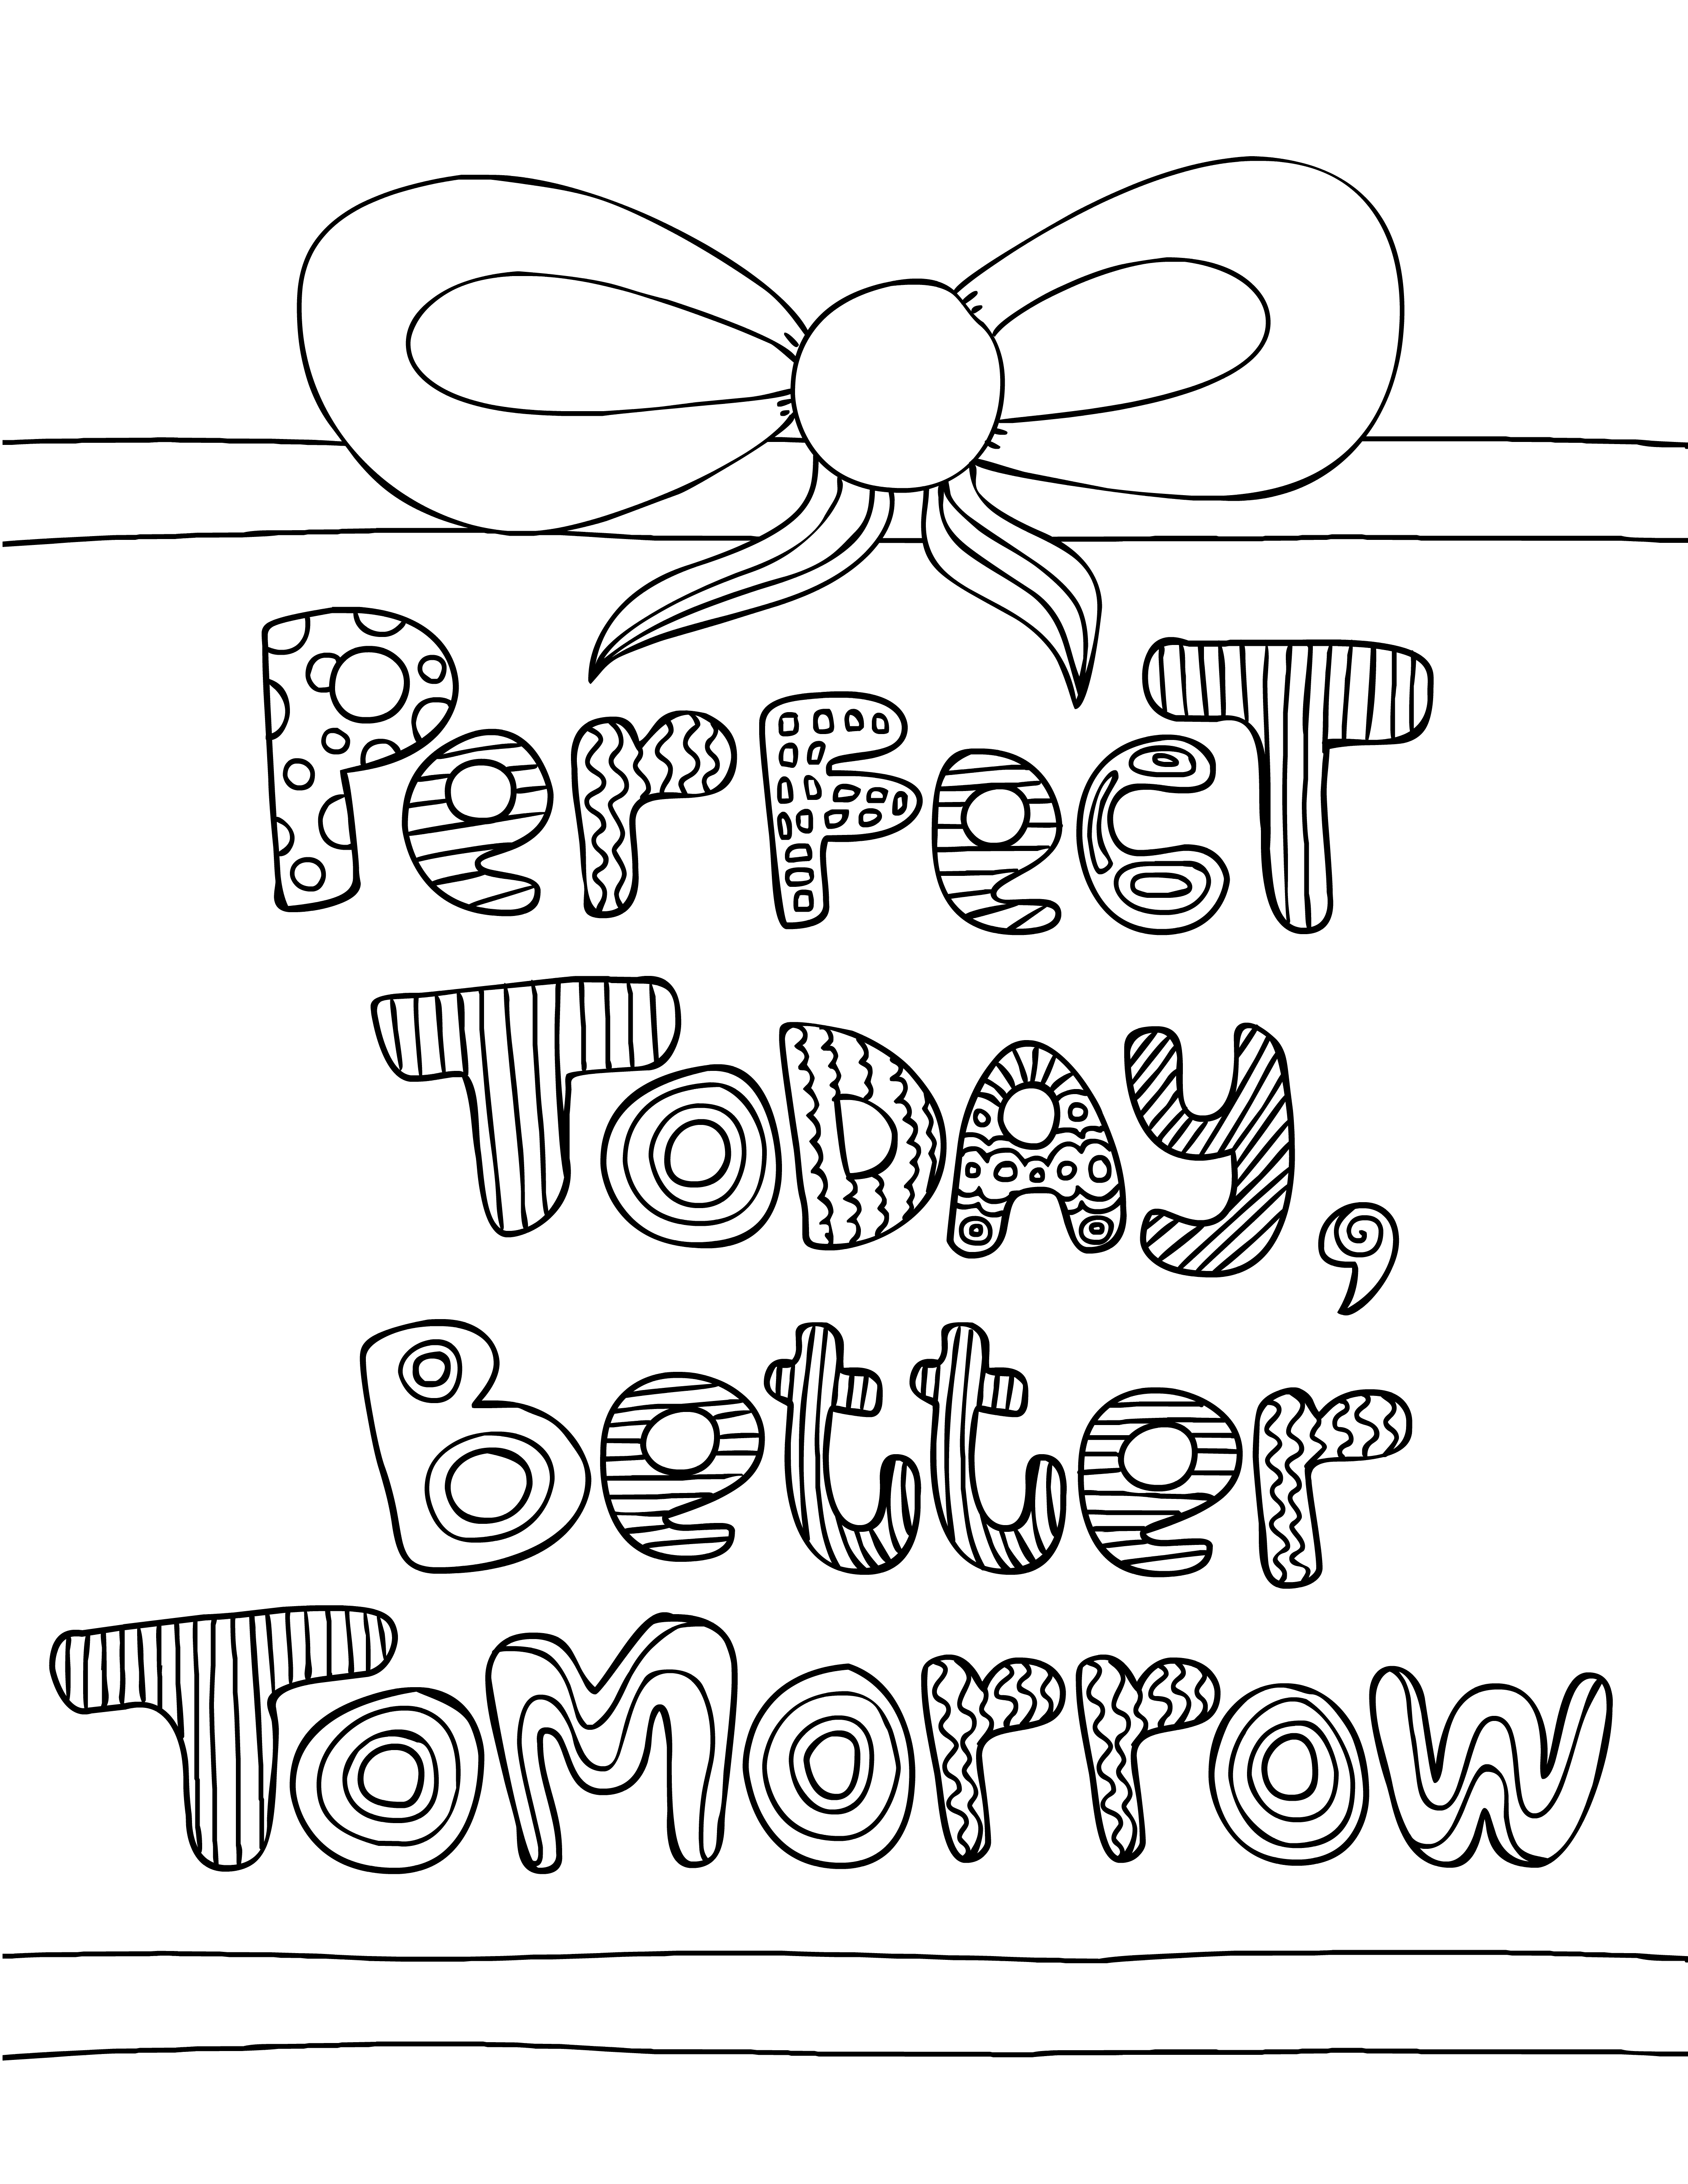 PerFecT
ToDAy,
Better
ToMorrow